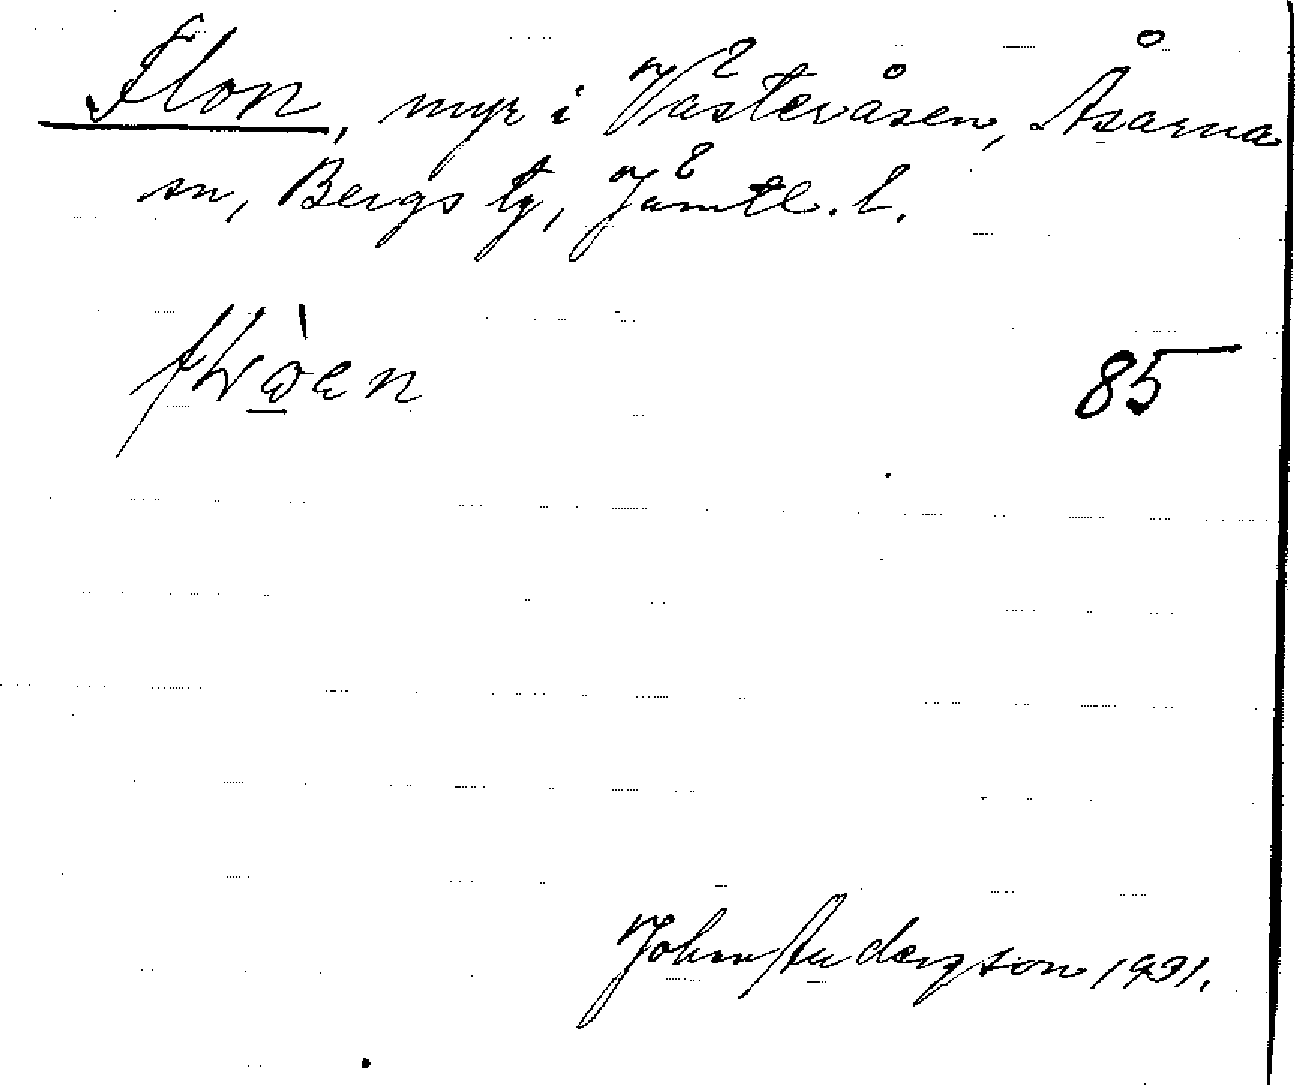 Flon, myr i Västeråsen, Åsarna
sn, Bergs tg, Jämtl. l.
85
John Andersson 1931.